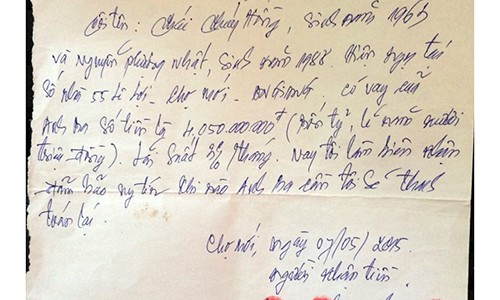 Có tên: Thái Thúy Hồng, sinh năm 1965
và Nguyễn Phương Nhật, sinh năm 1988. Hiện ngụ tại
Số nhà 55 Lê Lợi - Chợ Mới - có vay của
Anh Ba số tiền là 4.050.000.000đ (bốn tỷ, lẻ năm mươi
triệu đồng). Lãi suất 2%/tháng. Nay tôi làm biên nhận
đảm bảo uy tín khi nào Anh Ba cần tôi sẽ thanh
toán lại.
Chợ Mới, ngày 07/05/2015.
người nhận tiền.